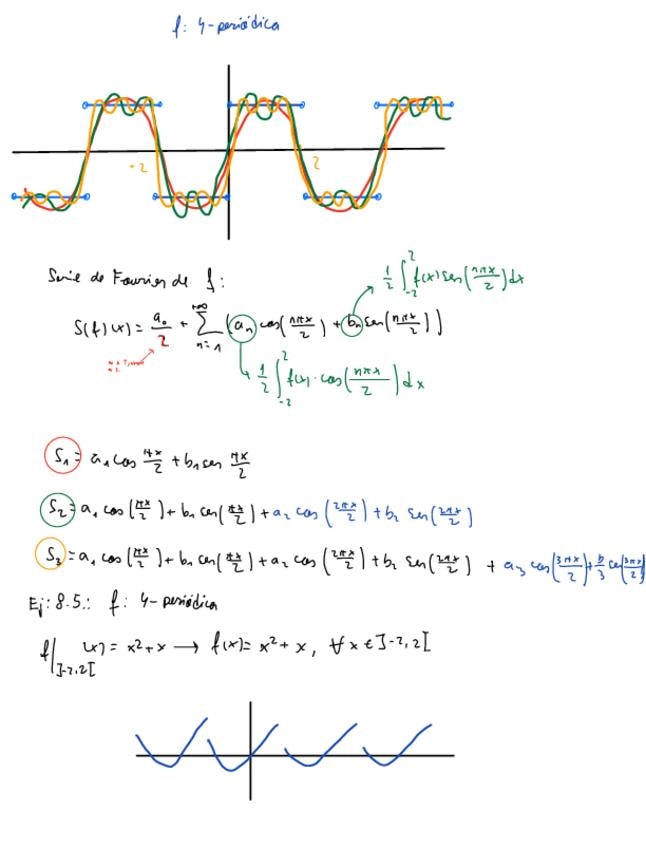 f: 4-periódica
-2
2
Serie de Fourier de f:
1/2 ∫_{-2}^{2} f(x) sen(nπx/2) dx
S(f)(x) = a₀/2 + ∑_{n=1}^{+∞} (aₙ cos(nπx/2) + bₙ sen(nπx/2))
1/2 ∫_{-2}^{2} f(x) · cos(nπx/2) dx
S₁ = a₁ cos πx/2 + b₁ sen πx/2
S₂ = a₁ cos(πx/2) + b₁ sen(πx/2) + a₂ cos(2πx/2) + b₂ sen(2πx/2)
S₃ = a₁ cos(πx/2) + b₁ sen(πx/2) + a₂ cos(2πx/2) + b₂ sen(2πx/2) + a₃ cos(3πx/2) + b₃ sen(3πx/2)
Ej: 8.5.: f: 4-periódica
f|_{]-2,2[} (x) = x² + x → f(x) = x² + x, ∀x ∈ ]-2,2[